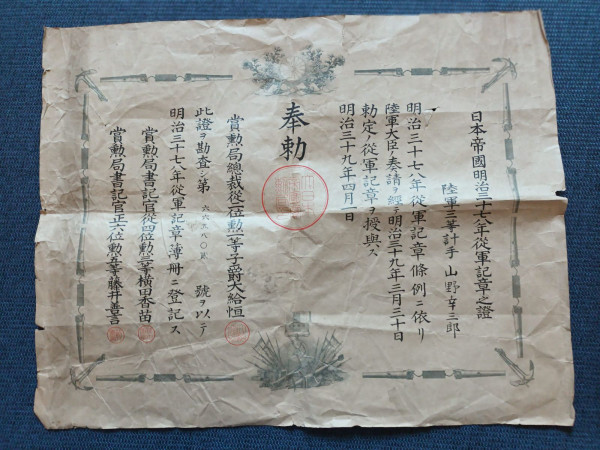 日本帝國明治三十七八年從軍記章之證
陸軍三等計手 山野辛三郎
明治三十七八年從軍記章條例ニ依リ
陸軍大臣ノ奏請ヲ經テ明治三十九年三月三十日
勅定ノ從軍記章ヲ授與ス
明治三十九年四月一日
奉勅
賞勲局總裁從二位勲一等子爵大給恒
此證ヲ勘査シ第 號ヲ以テ
明治三十七八年從軍記章簿冊ニ登記ス
賞勲局書記官從四位勲三等横田香苗
賞勲局書記官正六位勲五等藤井善言